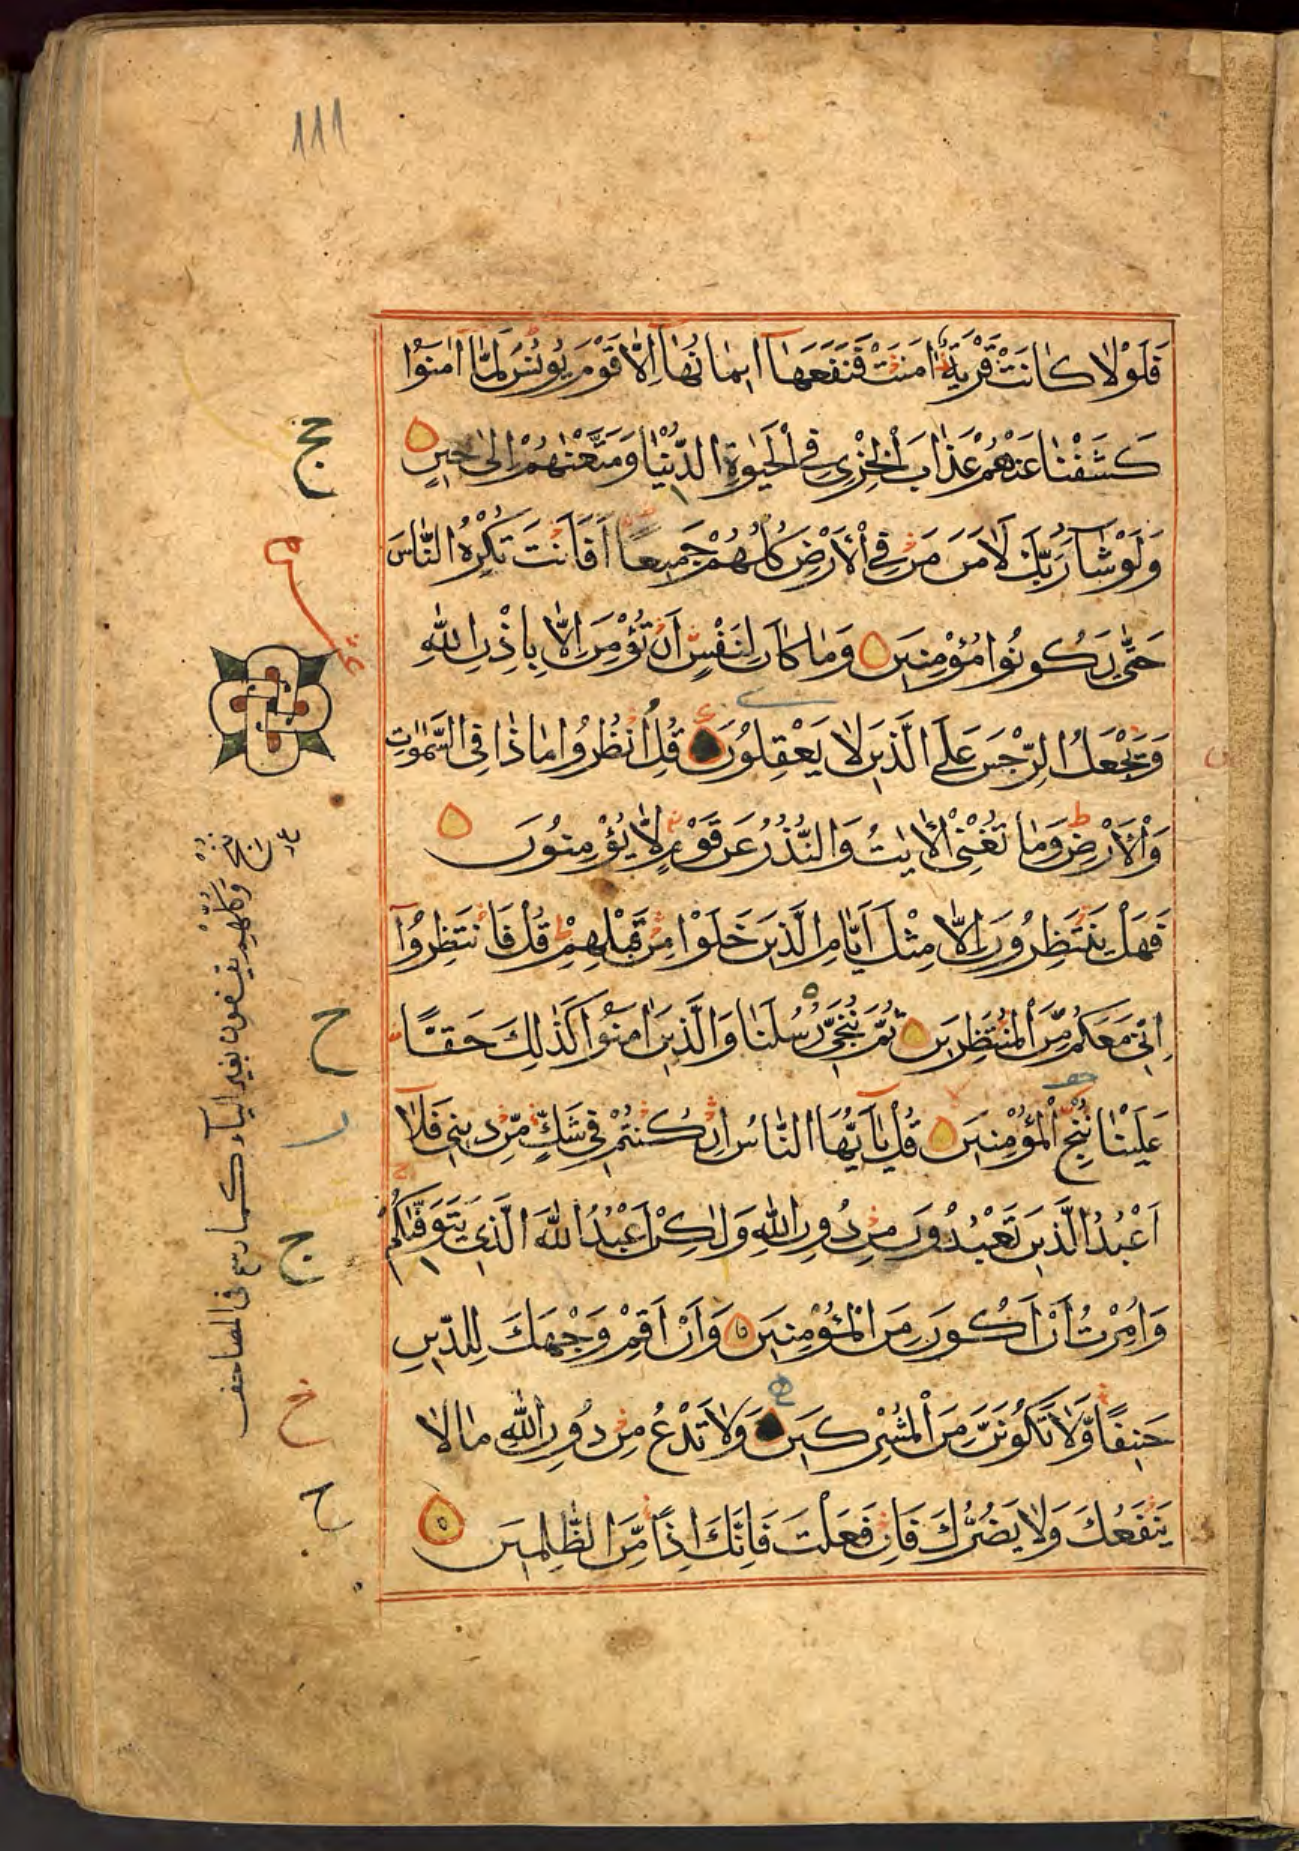 111
فَلَوْلَا كَانَتْ قَرْيَةٌ اٰمَنَتْ فَنَفَعَهَآ اِيمَانُهَآ اِلَّا قَوْمَ يُونُسَ لَمَّآ اٰمَنُوا
كَشَفْنَا عَنْهُمْ عَذَابَ الْخِزْيِ فِي الْحَيٰوةِ الدُّنْيَا وَمَتَّعْنٰهُمْ اِلٰى حِينٍ
وَلَوْ شَآءَ رَبُّكَ لَاٰمَنَ مَنْ فِي الْاَرْضِ كُلُّهُمْ جَمِيعًا اَفَاَنْتَ تُكْرِهُ النَّاسَ
حَتّٰى يَكُونُوا مُؤْمِنِينَ وَمَا كَانَ لِنَفْسٍ اَنْ تُؤْمِنَ اِلَّا بِاِذْنِ اللّٰهِ
وَيَجْعَلُ الرِّجْسَ عَلَى الَّذِينَ لَا يَعْقِلُونَ قُلِ انْظُرُوا مَاذَا فِي السَّمٰوٰتِ
وَالْاَرْضِ وَمَا تُغْنِي الْاٰيٰتُ وَالنُّذُرُ عَنْ قَوْمٍ لَّا يُؤْمِنُونَ
فَهَلْ يَنْتَظِرُونَ اِلَّا مِثْلَ اَيَّامِ الَّذِينَ خَلَوْا مِنْ قَبْلِهِمْ قُلْ فَانْتَظِرُوٓا
اِنِّي مَعَكُمْ مِّنَ الْمُنْتَظِرِينَ ثُمَّ نُنَجِّي رُسُلَنَا وَالَّذِينَ اٰمَنُوا كَذٰلِكَ حَقًّا
عَلَيْنَا نُنْجِ الْمُؤْمِنِينَ قُلْ يٰٓاَيُّهَا النَّاسُ اِنْ كُنْتُمْ فِي شَكٍّ مِّنْ دِينِي فَلَآ
اَعْبُدُ الَّذِينَ تَعْبُدُونَ مِنْ دُونِ اللّٰهِ وَلٰكِنْ اَعْبُدُ اللّٰهَ الَّذِي يَتَوَفّٰىكُمْ
وَاُمِرْتُ اَنْ اَكُونَ مِنَ الْمُؤْمِنِينَ وَاَنْ اَقِمْ وَجْهَكَ لِلدِّينِ
حَنِيفًا وَّلَا تَكُونَنَّ مِنَ الْمُشْرِكِينَ وَلَا تَدْعُ مِنْ دُونِ اللّٰهِ مَا لَا
يَنْفَعُكَ وَلَا يَضُرُّكَ فَاِنْ فَعَلْتَ فَاِنَّكَ اِذًا مِّنَ الظّٰلِمِينَ
وكلهم يقفون بغير الياء كما رسم في المصاحف
ج
عشر
ح
ج
خ
ح